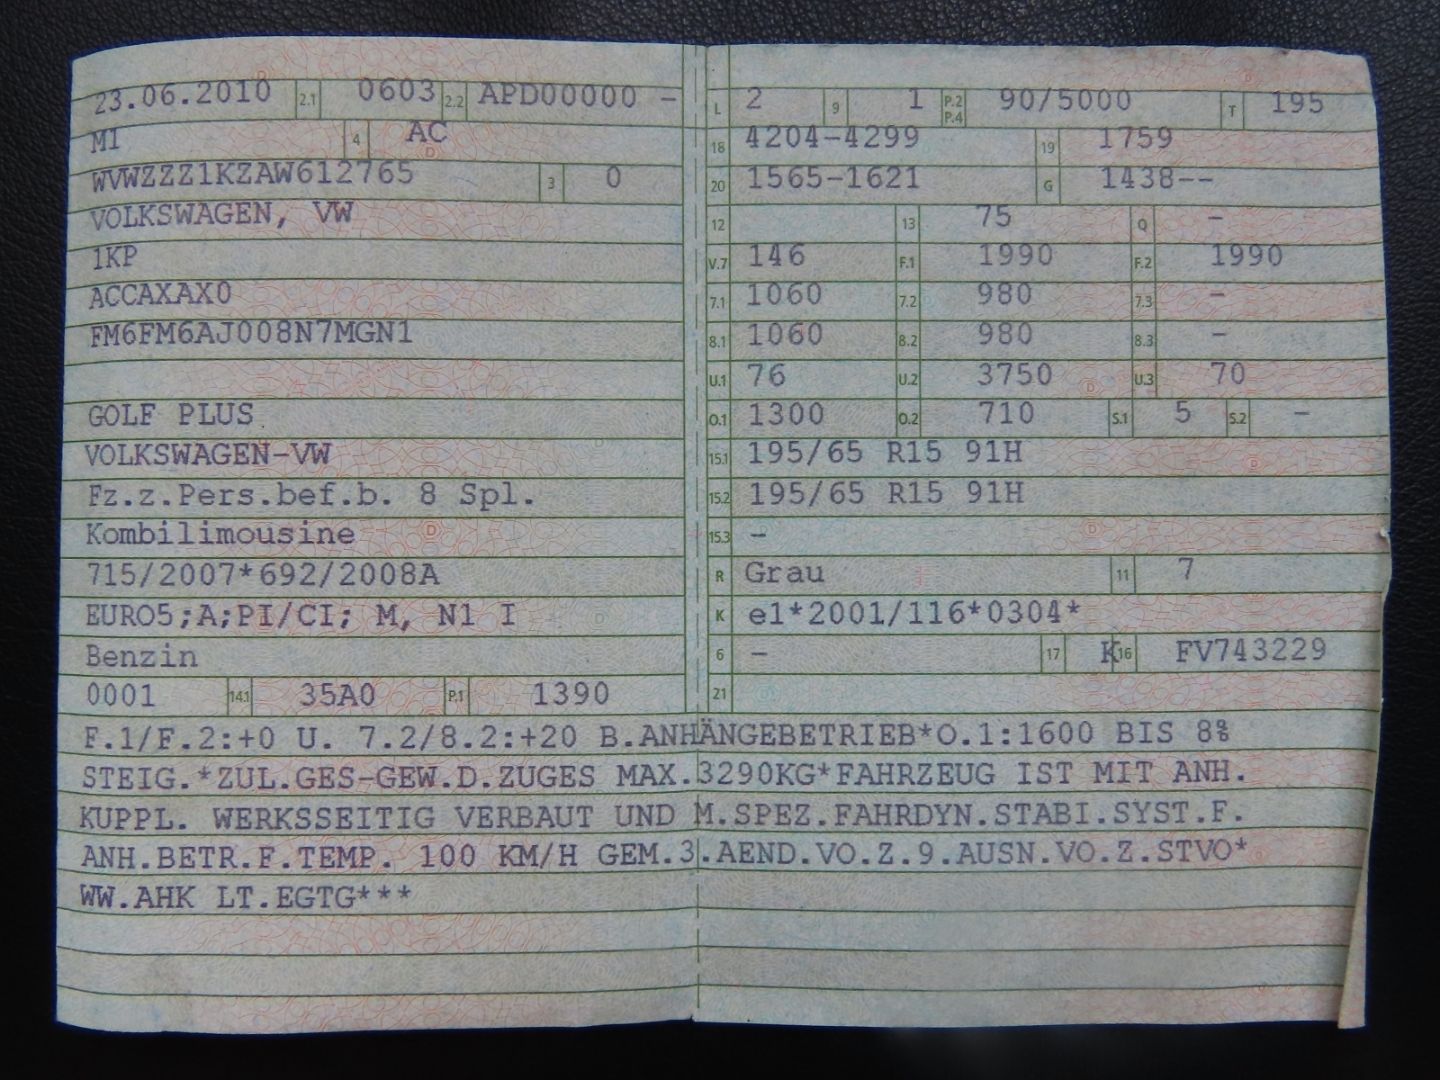 23.06.2010 2.1 0603 2.2 APD00000 -
M1 4 AC
WVWZZZ1KZAW612765 3 0
VOLKSWAGEN, VW
1KP
ACCAXAX0
FM6FM6AJ008N7MGN1
GOLF PLUS
VOLKSWAGEN-VW
Fz.z.Pers.bef.b. 8 Spl.
Kombilimousine
715/2007*692/2008A
EURO5;A;PI/CI; M, N1 I
Benzin
0001 14.1 35A0 P.1 1390
L 2 9 1 P.2 P.4 90/5000 T 195
18 4204-4299 19 1759
20 1565-1621 G 1438--
12 13 75 Q -
V.7 146 F.1 1990 F.2 1990
7.1 1060 7.2 980 7.3 -
8.1 1060 8.2 980 8.3 -
U.1 76 U.2 3750 U.3 70
O.1 1300 O.2 710 S.1 5 S.2 -
15.1 195/65 R15 91H
15.2 195/65 R15 91H
15.3 -
R Grau 11 7
K e1*2001/116*0304*
6 - 17 K 16 FV743229
21
F.1/F.2:+0 U. 7.2/8.2:+20 B.ANHÄNGEBETRIEB*O.1:1600 BIS 8%
STEIG.*ZUL.GES-GEW.D.ZUGES MAX.3290KG*FAHRZEUG IST MIT ANH.
KUPPL. WERKSSEITIG VERBAUT UND M.SPEZ.FAHRDYN.STABI.SYST.F.
ANH.BETR.F.TEMP. 100 KM/H GEM.3.AEND.VO.Z.9.AUSN.VO.Z.STVO*
WW.AHK LT.EGTG***